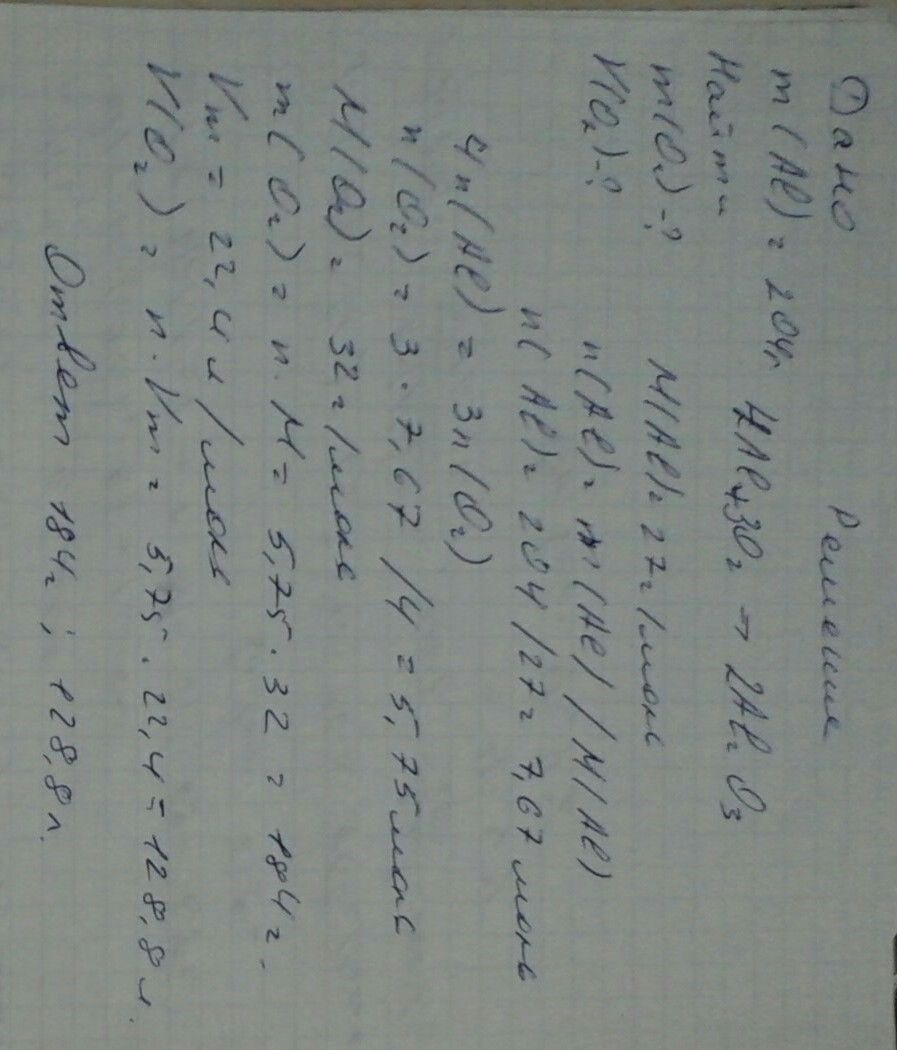 Дано
Решение
m(Al) = 204г.
4Al+3O₂ → 2Al₂O₃
Найти
m(O₂)-?
M(Al) = 27г/моль
V(O₂)-?
n(Al) = m(Al)/M(Al)
n(Al) = 204/27 = 7,67 моль
4n(Al) = 3n(O₂)
n(O₂) = 3·7,67/4 = 5,75моль
M(O₂) = 32г/моль
m(O₂) = n·M = 5,75·32 = 184г.
Vm = 22,4 л/моль
V(O₂) = n·Vm = 5,75·22,4=128,8л.
Ответ 184г; 128,8л.